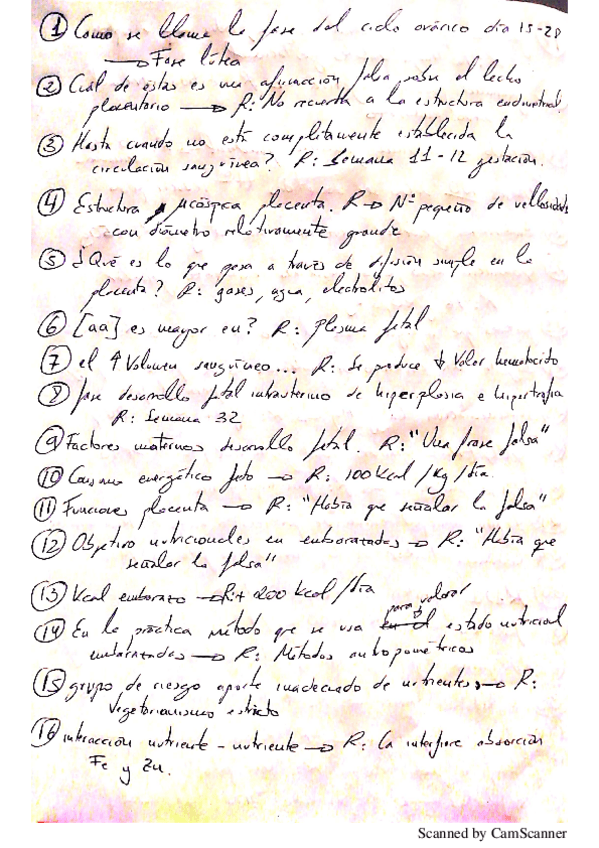 ① Como se llama la fase del ciclo ovárico día 15-28
→ Fase lútea
② Cuál de éstas es una afirmación falsa sobre el lecho
placentario → R: No recuerda a la estructura endometrial
③ Hasta cuando no está completamente establecida la
circulación sanguínea? R: Semana 11-12 gestación.
④ Estructura placenta. R → Nº pequeño de vellosidades
con diámetro relativamente grande
⑤ ¿Qué es lo que pasa a través de difusión simple en la
placenta? R: gases, agua, electrolitos
⑥ [aa] es mayor en? R: Plasma fetal
⑦ el ↑ Volumen sanguíneo... R: Se produce ↓ Valor hematocito
⑧ fase desarrollo fetal intrauterino de hiperplasia e hipertrofia
R: Semana 32
⑨ Factores maternos desarrollo fetal. R: "Una frase falsa"
⑩ Consumo energético feto → R: 100 Kcal / Kg / día.
⑪ Funciones placenta → R: "Había que señalar la falsa"
⑫ Objetivo nutricionales en embarazadas → R: "Había que
señalar la falsa"
⑬ Kcal embarazo → R: + 200 Kcal / día
⑭ En la práctica método que se usa para valorar el estado nutricional
embarazadas → R: Métodos antropométricos
⑮ grupo de riesgo aporte inadecuado de nutrientes → R:
Vegetarianismo estricto
⑯ interacción nutriente - nutriente → R: Ca interfiere absorción
Fe y Zn.
Scanned by CamScanner